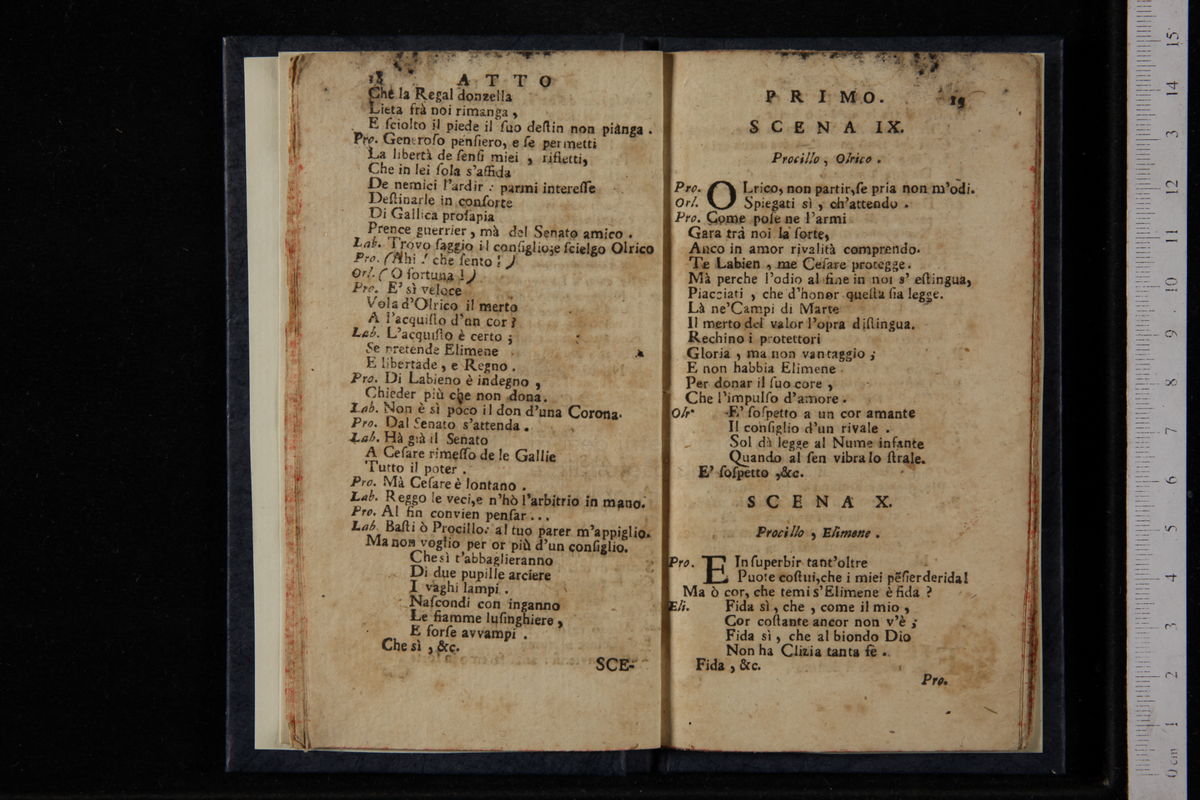 18 ATTO
Che la Regal donzella
Lieta frà noi rimanga ,
E ſciolto il piede il ſuo deſtin non piànga .
Pro. Generoſo penſiero, e ſe permetti
La libertà de ſenſi miei , rifletti,
Che in lei ſola s'affida
De nemici l'ardir : parmi intereſſe
Deſtinarle in conſorte
Di Gallica proſapia
Prence guerrier , mà del Senato amico .
Lab. Trovo ſaggio il conſiglio;e ſcielgo Olrico
Pro. (Ahi ! che ſento ! )
Orl. ( O fortuna ! )
Pro. E' sì veloce
Vola d'Olrico il merto
A l'acquiſto d'un cor ?
Lab. L'acquiſto è certo ;
Se pretende Elimene
E libertade , e Regno .
Pro. Di Labieno è indegno ,
Chieder più che non dona .
Lab. Non è sì poco il don d'una Corona.
Pro. Dal Senato s'attenda .
Lab. Hà già il Senato
A Ceſare rimeſſo de le Gallie
Tutto il poter .
Pro. Mà Ceſare è lontano .
Lab. Reggo le veci,e n'hò l'arbitrio in mano.
Pro. Al fin convien penſar . . .
Lab. Baſti ò Procillo: al tuo parer m'appiglio.
Ma non voglio per or più d'un conſiglio.
Che sì t'abbaglieranno
Di due pupille arciere
I vaghi lampi .
Naſcondi con inganno
Le fiamme luſinghiere ,
E forſe avvampi .
Che sì , &c.
SCE-
PRIMO. 19
SCENA IX.
Procillo , Olrico .
Pro. OLrico, non partir,ſe pria non m'odi.
Orl. Spiegati sì , ch'attendo .
Pro. Come poſe ne l'armi
Gara trà noi la ſorte,
Anco in amor rivalità comprendo.
Te Labien , me Ceſare protegge.
Mà perche l'odio al fine in noi s' eſtingua,
Piacciati , che d'honor queſta ſia legge.
Là ne'Campi di Marte
Il merto del valor l'opra diſtingua.
Rechino i protettori
Gloria , ma non vantaggio ;
E non habbia Elimene
Per donar il ſuo core ,
Che l'impulſo d'amore .
Olr. E' ſoſpetto a un cor amante
Il conſiglio d'un rivale .
Sol dà legge al Nume infante
Quando al ſen vibra lo ſtrale.
E' ſoſpetto ,&c.
SCENA X.
Procillo , Elimene .
Pro. E Inſuperbir tant'oltre
Puote coſtui,che i miei pẽſier derida!
Ma ò cor, che temi s'Elimene è fida ?
Eli. Fida sì , che , come il mio ,
Cor coſtante ancor non v'è ;
Fida sì , che al biondo Dio
Non ha Clizia tanta fè .
Fida , &c.
Pro.
0 cm 1 2 3 4 5 6 7 8 9 10 11 12 13 14 15